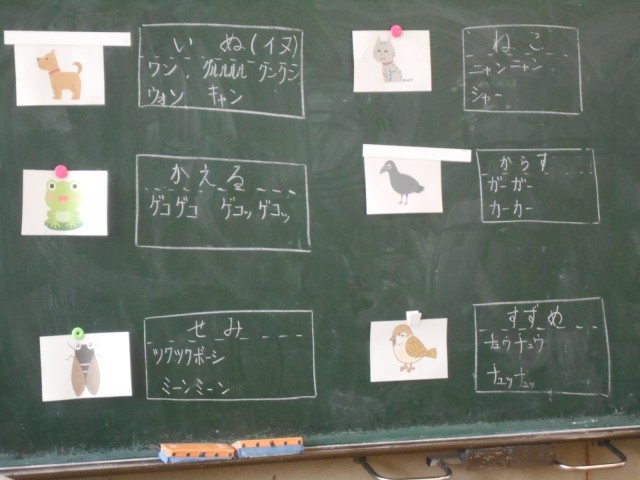 いぬ(イヌ)
ワン グルルル クンクン
ウォン キャン
ねこ
ニャンニャン
シャー
かえる
ゲコゲコ ゲコッゲコッ
からす
ガーガー
カーカー
せみ
ツクツクボーシ
ミーンミーン
すずめ
チュウチュウ
チュッチュッ